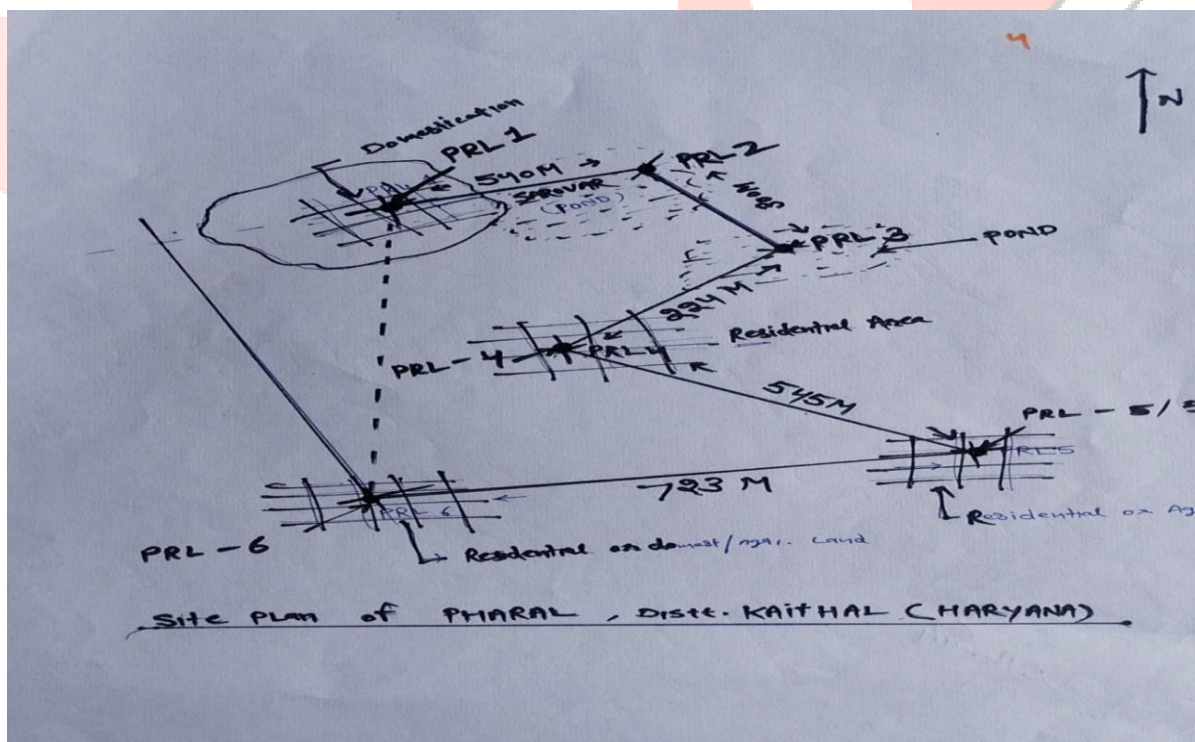 4
N
Domestication
PRL 1
540M
PRL 2
SAROVAR
(POND)
PRL 3
POND
224 M
Residential Area
PRL - 4
PRL 4
545M
PRL - 5/
PRL-5
723 M
PRL - 6
PRL - 6
Residential or
Residential or domest/agr. Land
Site Plan of PHARAL, Distt. KAITHAL (HARYANA)